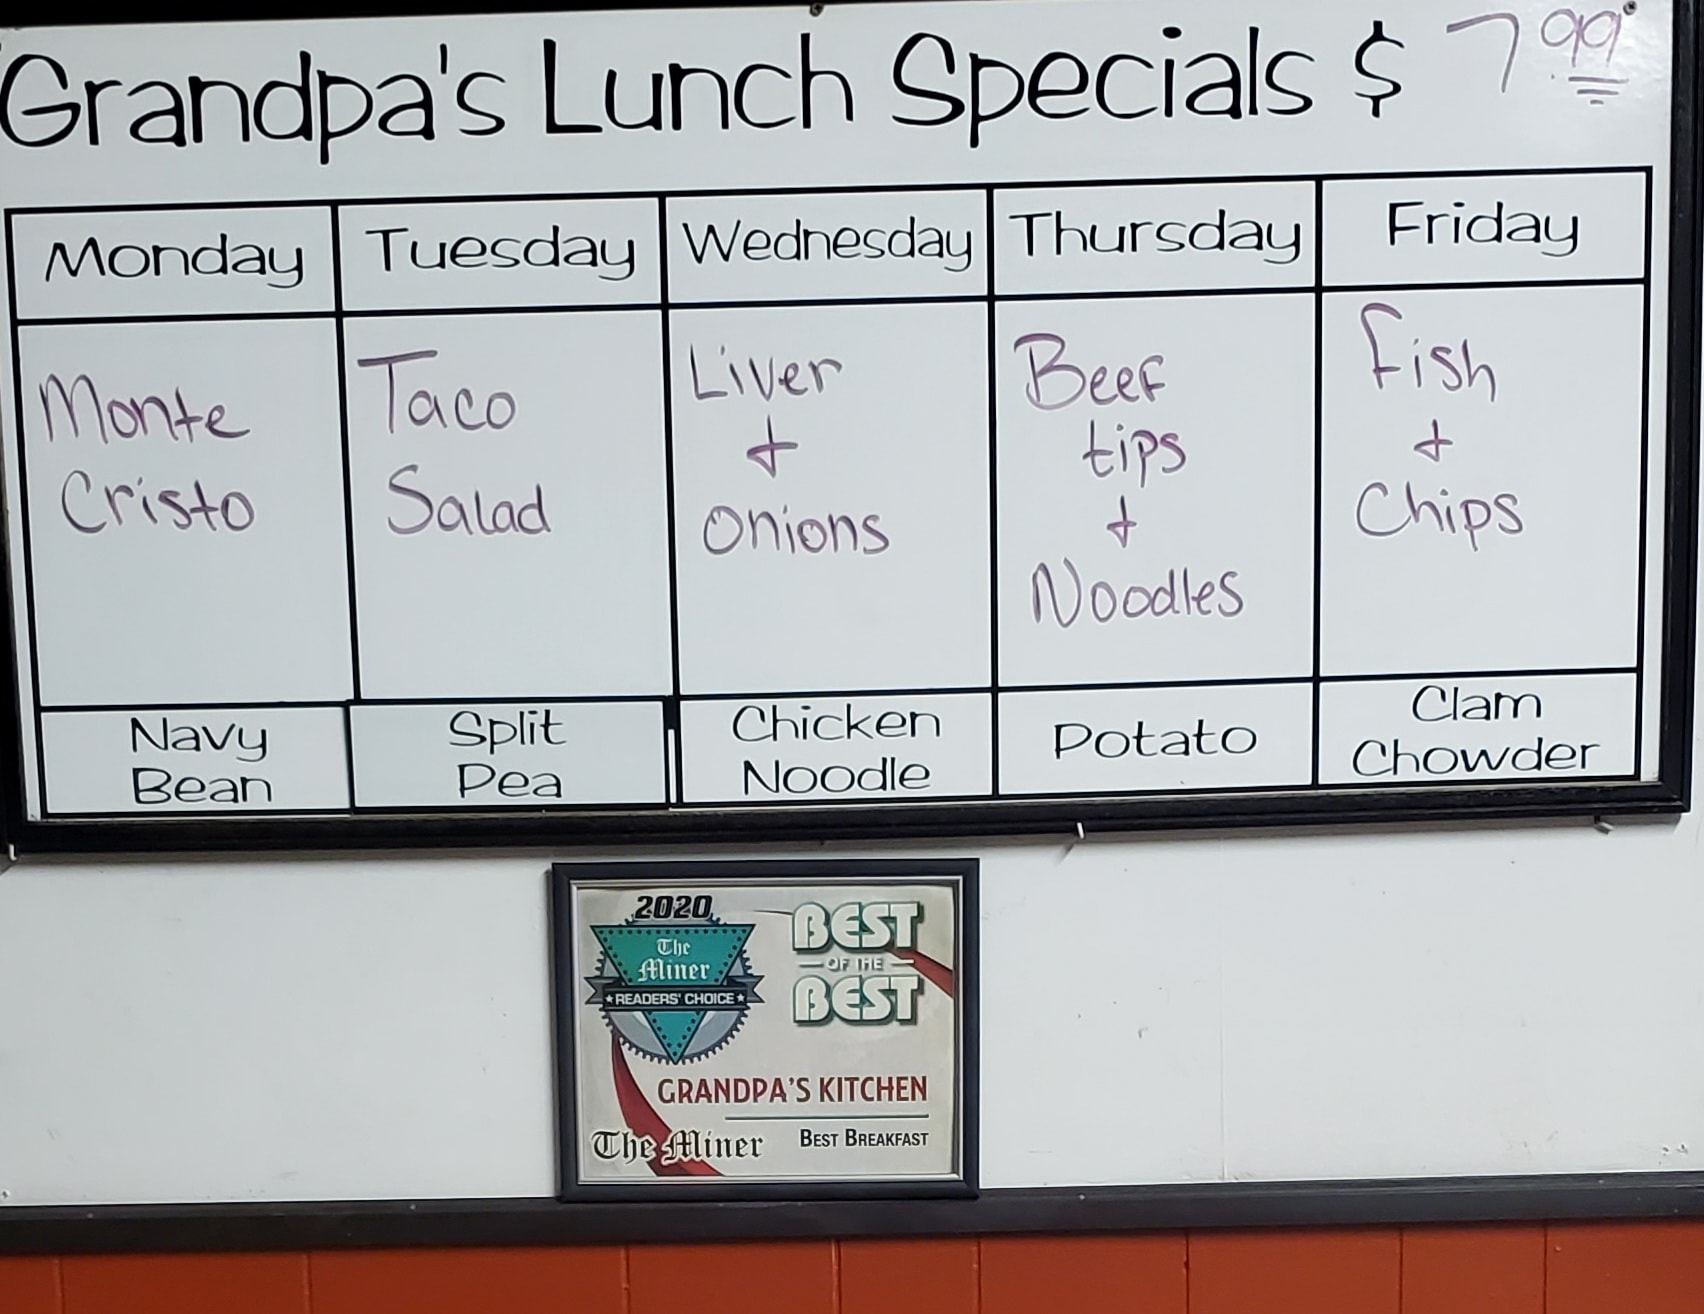 Grandpa's Lunch Specials $ 7.99
Monday Tuesday Wednesday Thursday Friday
Monte
Cristo
Taco
Salad
Liver
+
Onions
Beef
tips
+
Noodles
Fish
+
Chips
Navy
Bean
Split
Pea
Chicken
Noodle
Potato
Clam
Chowder
2020
The
Miner
★ READERS' CHOICE ★
BEST
OF THE
BEST
GRANDPA'S KITCHEN
The Miner
BEST BREAKFAST